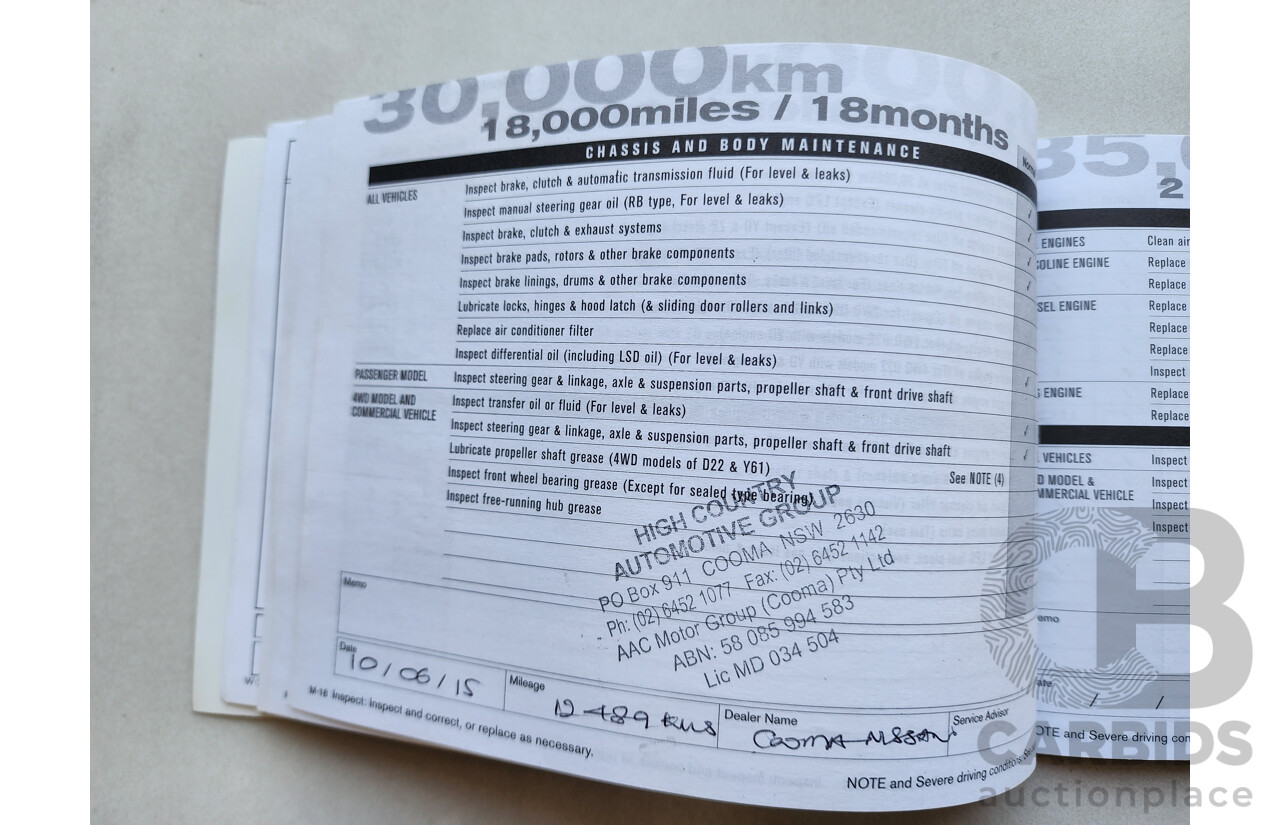 30,000km
18,000miles / 18months
CHASSIS AND BODY MAINTENANCE
ALL VEHICLES
Inspect brake, clutch & automatic transmission fluid (For level & leaks)
Inspect manual steering gear oil (RB type, For level & leaks)
Inspect brake, clutch & exhaust systems
Inspect brake pads, rotors & other brake components
Inspect brake linings, drums & other brake components
Lubricate locks, hinges & hood latch (& sliding door rollers and links)
Replace air conditioner filter
Inspect differential oil (including LSD oil) (For level & leaks)
PASSENGER MODEL
Inspect steering gear & linkage, axle & suspension parts, propeller shaft & front drive shaft
4WD MODEL AND
COMMERCIAL VEHICLE
Inspect transfer oil or fluid (For level & leaks)
Inspect steering gear & linkage, axle & suspension parts, propeller shaft & front drive shaft
Lubricate propeller shaft grease (4WD models of D22 & Y61)
See NOTE (4)
Inspect front wheel bearing grease (Except for sealed type bearing)
Inspect free-running hub grease
HIGH COUNTRY
AUTOMOTIVE GROUP
PO Box 911 COOMA NSW 2630
Ph: (02) 6452 1077 Fax: (02) 6452 1142
AAC Motor Group (Cooma) Pty Ltd
ABN: 58 085 994 583
Lic MD 034 504
Memo
Date
10/06/15
Mileage
12 489 kms
Dealer Name
COOMA NISSAN
Service Advisor
M-16 Inspect: Inspect and correct, or replace as necessary.
NOTE and Severe driving conditions:
35,
2
ENGINES
Clean air
OLINE ENGINE
Replace
Replace
SEL ENGINE
Replace
Replace
Replace
Inspect
ENGINE
Replace
Replace
VEHICLES
Inspect
D MODEL &
MMERCIAL VEHICLE
Inspect
Inspect
Inspect
emo
ate
/ /
OTE and Severe driving con
CARBIDS
auctionplace